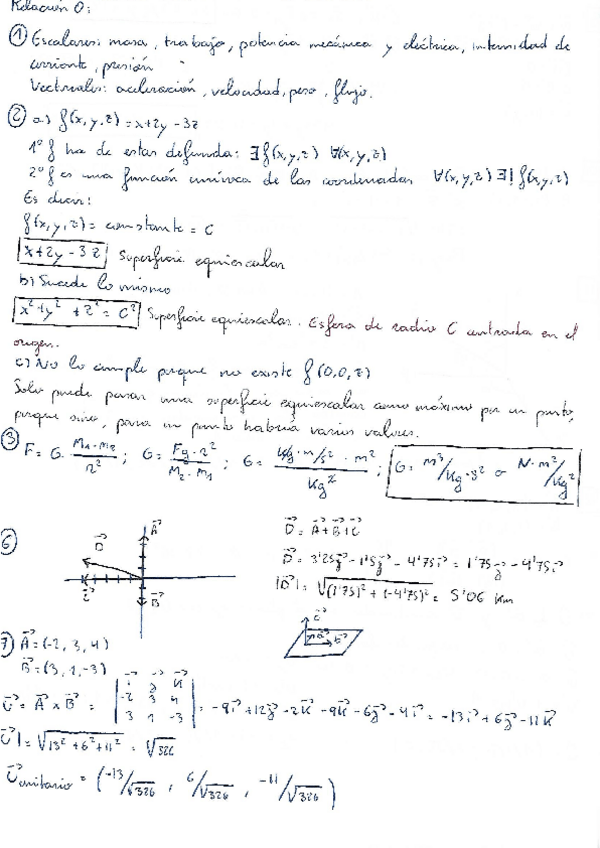 Relación 0:
① Escalares: masa, trabajo, potencia mecánica y eléctrica, intensidad de
corriente, presión
Vectoriales: aceleración, velocidad, peso, flujo.
② a) f(x,y,z) = x+2y-3z
1º f ha de estar definida: ∃ f(x,y,z) ∀(x,y,z)
2º f es una función unívoca de las coordenadas ∀(x,y,z) ∃! f(x,y,z)
Es decir:
f(x,y,z) = constante = C
x+2y-3z Superficie equiescalar
b) Sucede lo mismo
x²+y²+z² = C² Superficie equiescalar. Esfera de radio C centrada en el
origen.
c) No lo cumple porque no existe f(0,0,z)
Solo puede pasar una superficie equiescalar como máximo por un punto,
porque sino, para un punto habría varios valores.
③ F = G · M₁·m₂/r² ; G = Fg·r²/M₂·M₁ ; G = Kg·m/s²·m²/Kg² ; G = m³/Kg·s² o N·m²/Kg²
⑥ A⃗ D⃗ C⃗ B⃗
D⃗ = A⃗+B⃗+C⃗
D⃗ = 3'25j⃗ - 1'5j⃗ - 4'75i⃗ = 1'75j⃗ - 4'75i⃗
|D⃗| = √(1'75)²+(-4'75)² = 5'06 Km
⑦ A⃗ = (-2, 3, 4)
B⃗ = (3, 1, -3)
C⃗ = A⃗ x B⃗ = | i⃗ j⃗ k⃗ |
| -2 3 4 |
| 3 1 -3 | = -9i⃗+12j⃗-2k⃗-9k⃗-6j⃗-4i⃗ = -13i⃗+6j⃗-11k⃗
|C⃗| = √13²+6²+11² = √326
C⃗ unitario = (-13/√326, 6/√326, -11/√326)